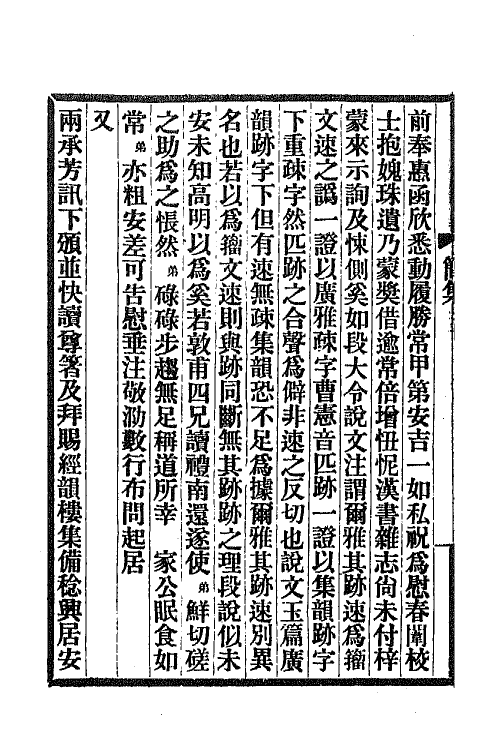 前奉惠函欣悉動履勝常甲第安吉一如私祝爲慰春闈校
士抱媿珠遺乃蒙獎借逾常倍增忸怩漢書雜志尙未付梓
蒙來示詢及悚側奚如段大令說文注謂爾雅其跡速爲籀
文速之譌一證以廣雅疎字曹憲音匹跡一證以集韻跡字
下重疎字然匹跡之合聲爲僻非速之反切也說文玉篇廣
韻跡字下但有速無疎集韻恐不足爲據爾雅其跡速別異
名也若以爲籀文速則與跡同斷無其跡跡之理段說似未
安未知高明以爲奚若敦甫四兄讀禮南還遂使弟鮮切磋
之助爲之悵然弟碌碌步趨無足稱道所幸 家公眠食如
常弟亦粗安差可告慰垂注敬泐數行布問起居
又
兩承芳訊下頒並快讀尊箸及拜賜經韻樓集備稔興居安
簡集